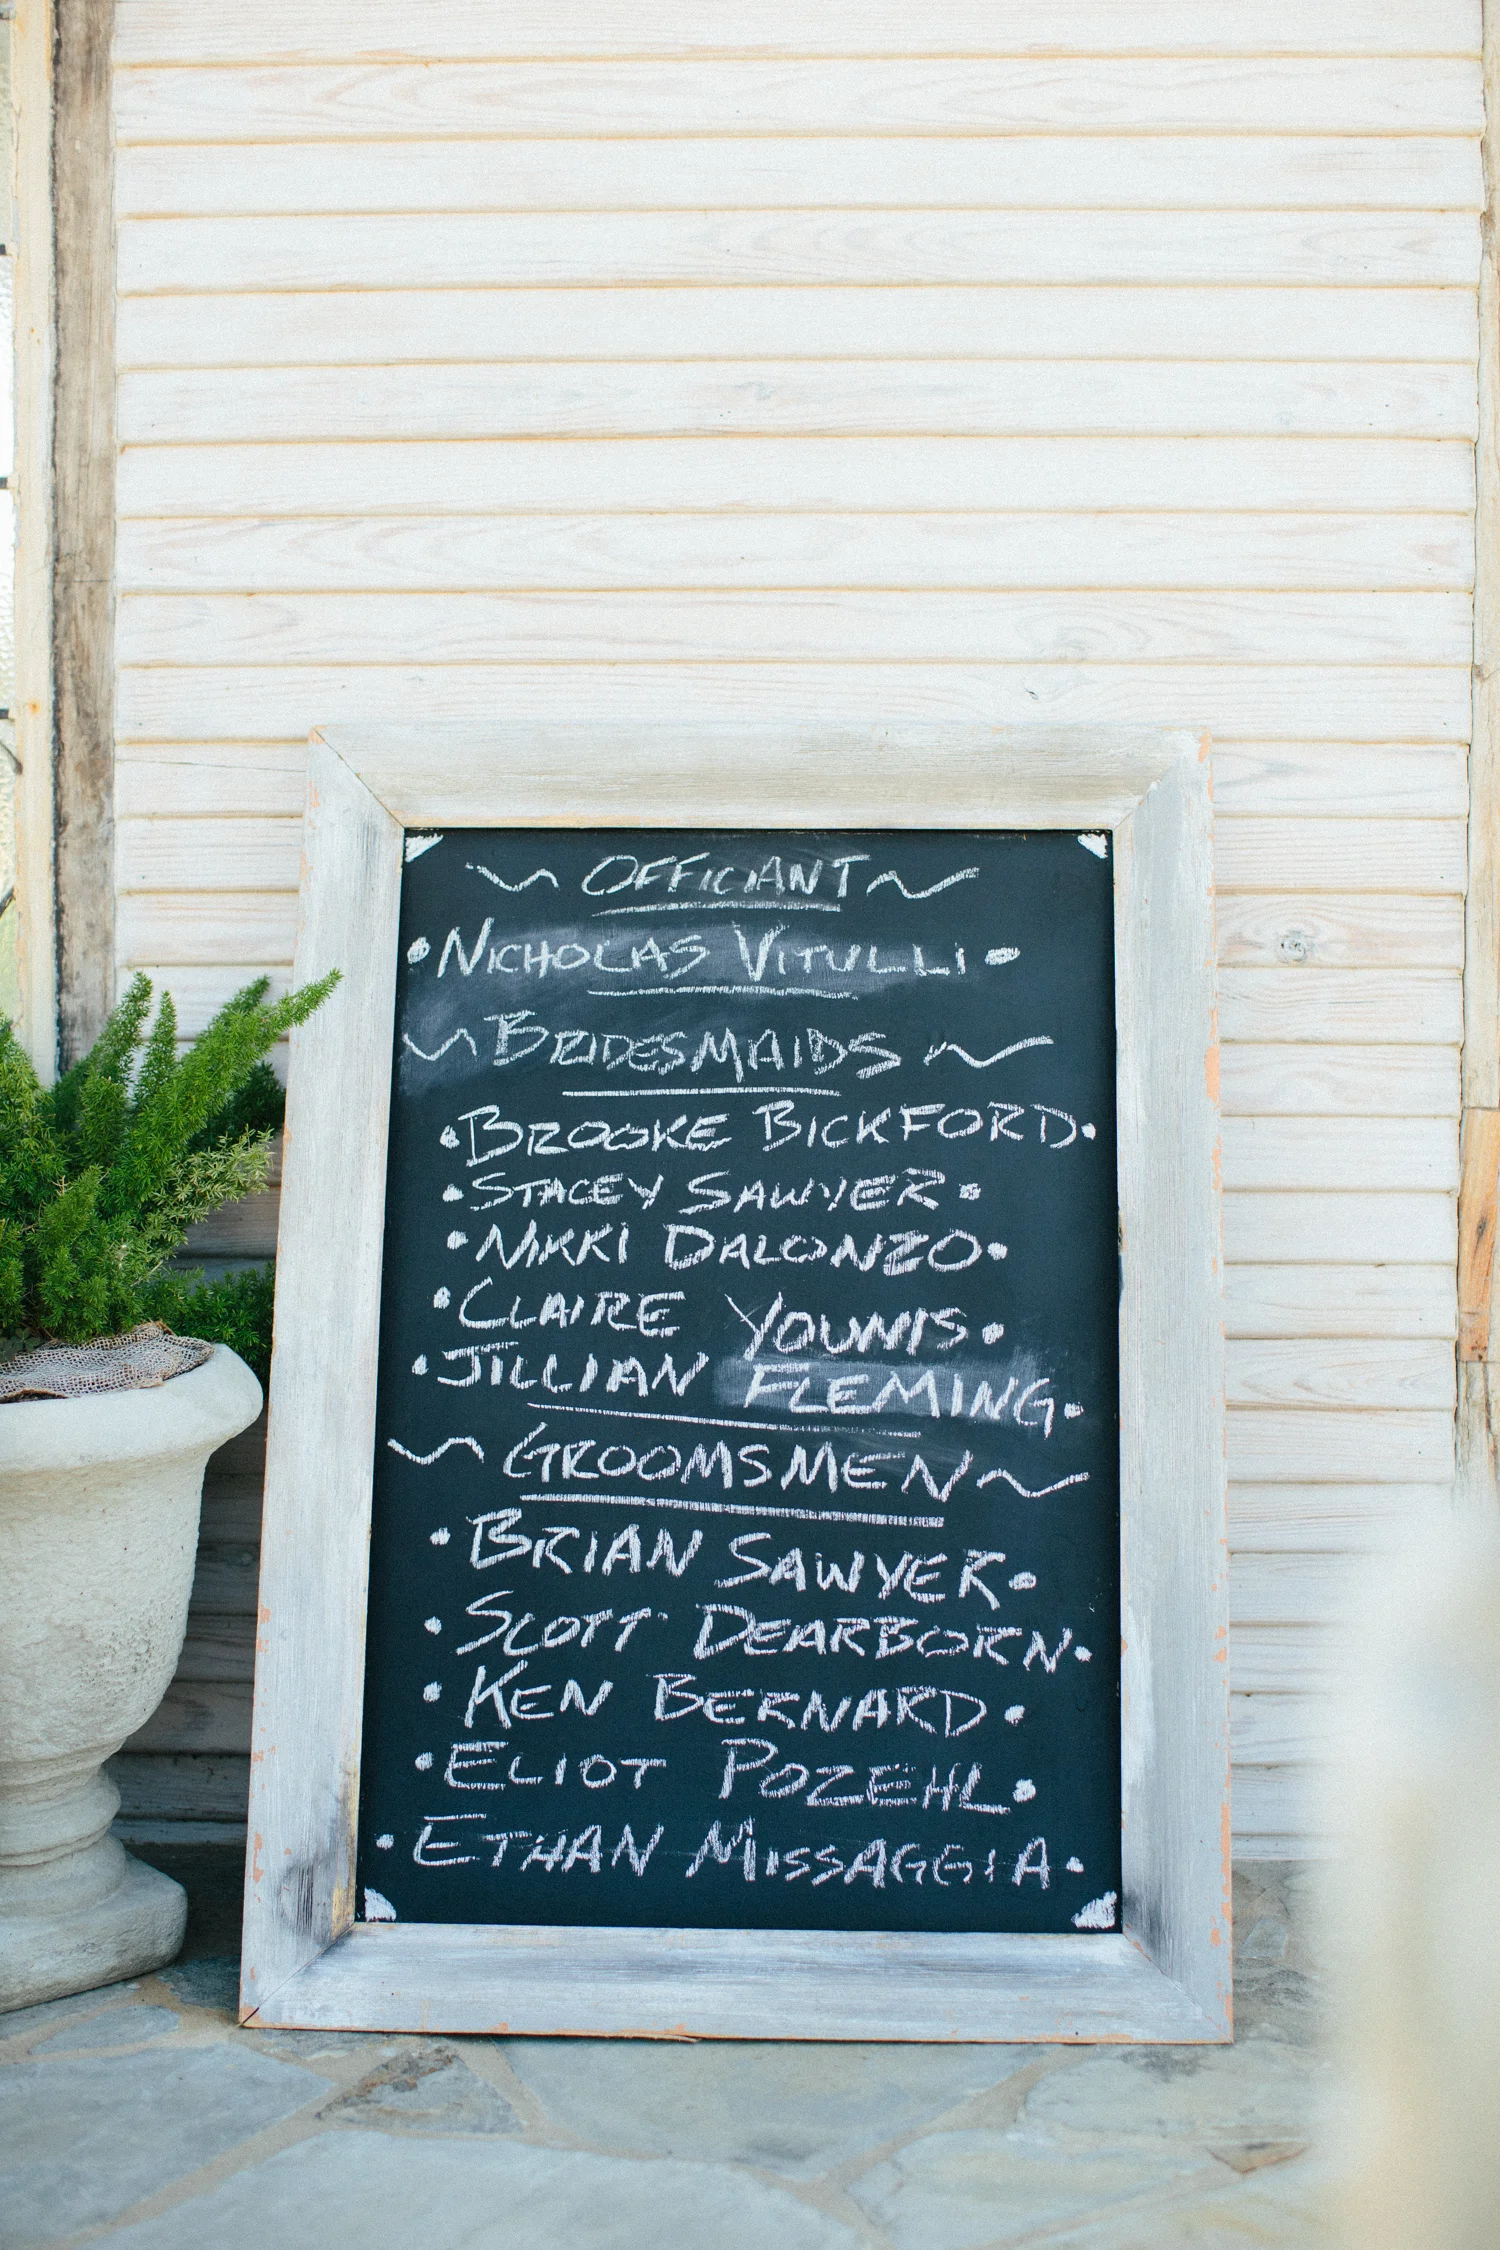 ~ OFFICIANT ~
• NICHOLAS VITULLI •
~ BRIDESMAIDS ~
• BROOKE BICKFORD •
• STACEY SAWYER •
• NIKKI DALONZO •
• CLAIRE YOUNIS •
• JILLIAN FLEMING •
~ GROOMSMEN ~
• BRIAN SAWYER •
• SCOTT DEARBORN •
• KEN BERNARD •
• ELIOT POZEHL •
• ETHAN MISSAGGIA •